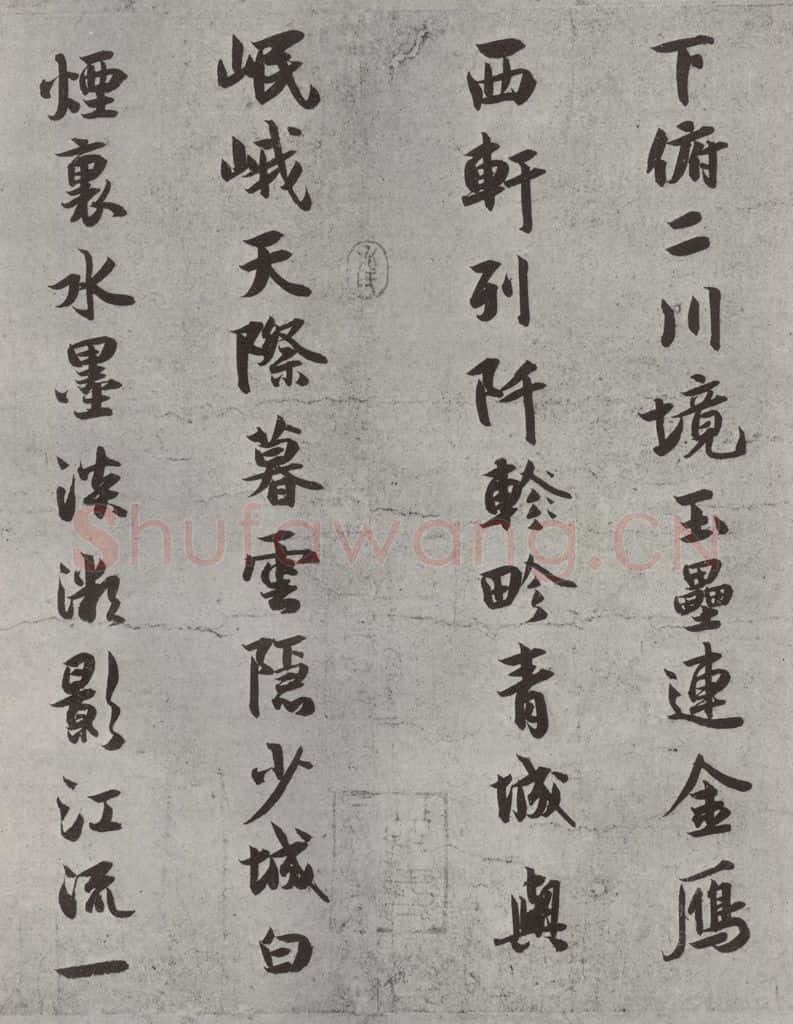 下俯二川境玉壘連金鴈
西軒列阡軫畛青城與
岷峨天際暮雲隱少城白
煙裏水墨淡影江流一
Shufawang.CN